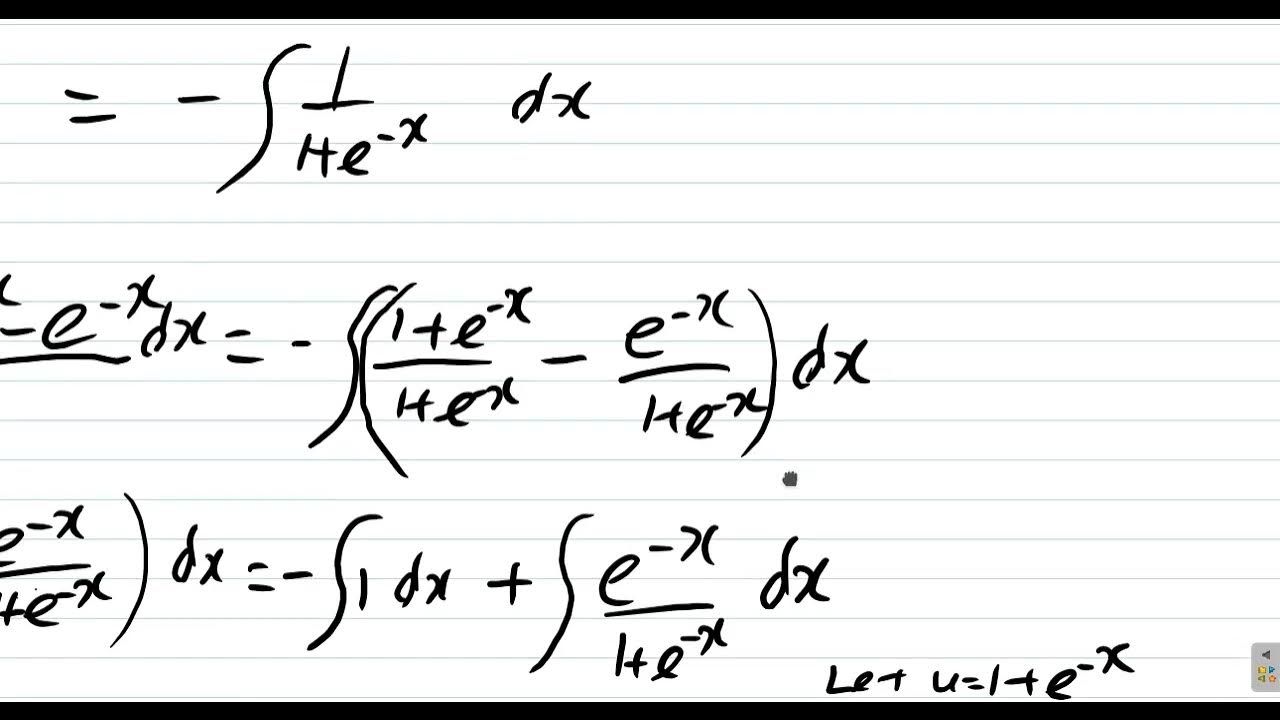 = - ∫ 1/(1+e^{-x}) dx
- e^{-x} dx = - ∫ ( (1+e^{-x})/(1+e^{-x}) - e^{-x}/(1+e^{-x}) ) dx
e^{-x}/(1+e^{-x}) ) dx = - ∫ 1 dx + ∫ e^{-x}/(1+e^{-x}) dx
Let u=1+e^{-x}